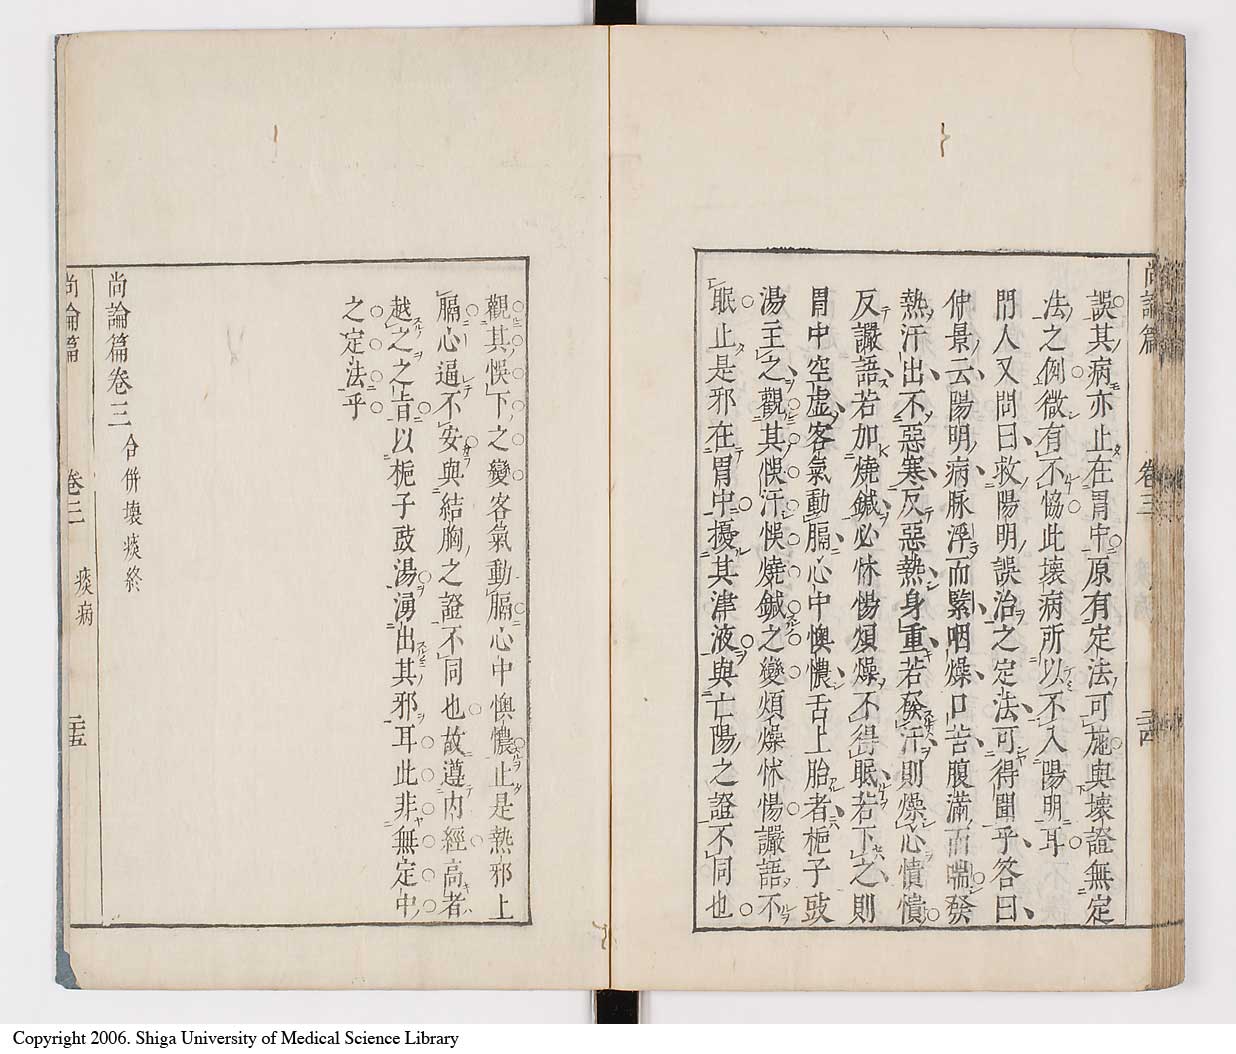 尚論篇 卷三 二十四
誤其病亦止在胃中原有定法可施與壞證無定
法之例微有不恊此壞病所以不入陽明耳
門人又問曰救陽明誤治之定法可得聞乎答曰
仲景云陽明病脉浮而緊咽燥口苦腹滿而喘發
熱汗出不惡寒反惡熱身重若發汗則燥心憒憒
反讝語若加燒鍼必怵惕煩燥不得眠若下之則
胃中空虛客氣動膈心中懊憹舌上胎者梔子豉
湯主之觀其悞汗悞燒鍼之變煩燥怵惕讝語不
眠止是邪在胃中擾其津液與亡陽之證不同也
觀其悞下之變客氣動膈心中懊憹止是熱邪上
膈心逼不安與結胸之證不同也故遵内經高者
越之之旨以梔子豉湯湧出其邪耳此非無定中
之定法乎
尚論篇卷三 合併壞痰終
尚論篇 卷三 痰病 二十五
Copyright 2006. Shiga University of Medical Science Library